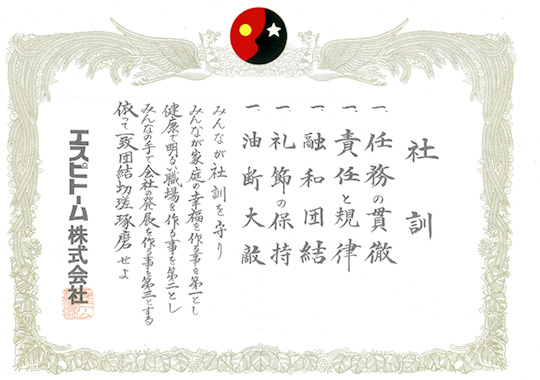 社訓
一、任務の貫徹
一、責任と規律
一、融和団結
一、礼節の保持
一、油断大敵
みんなが社訓を守り
みんなが家庭の幸福を作る事を第一とし
健康で明るい職場を作る事を第二とし
みんなの手で会社の発展を作る事を第三とする
依って一致団結切瑳琢磨せよ
エスピトーム株式会社